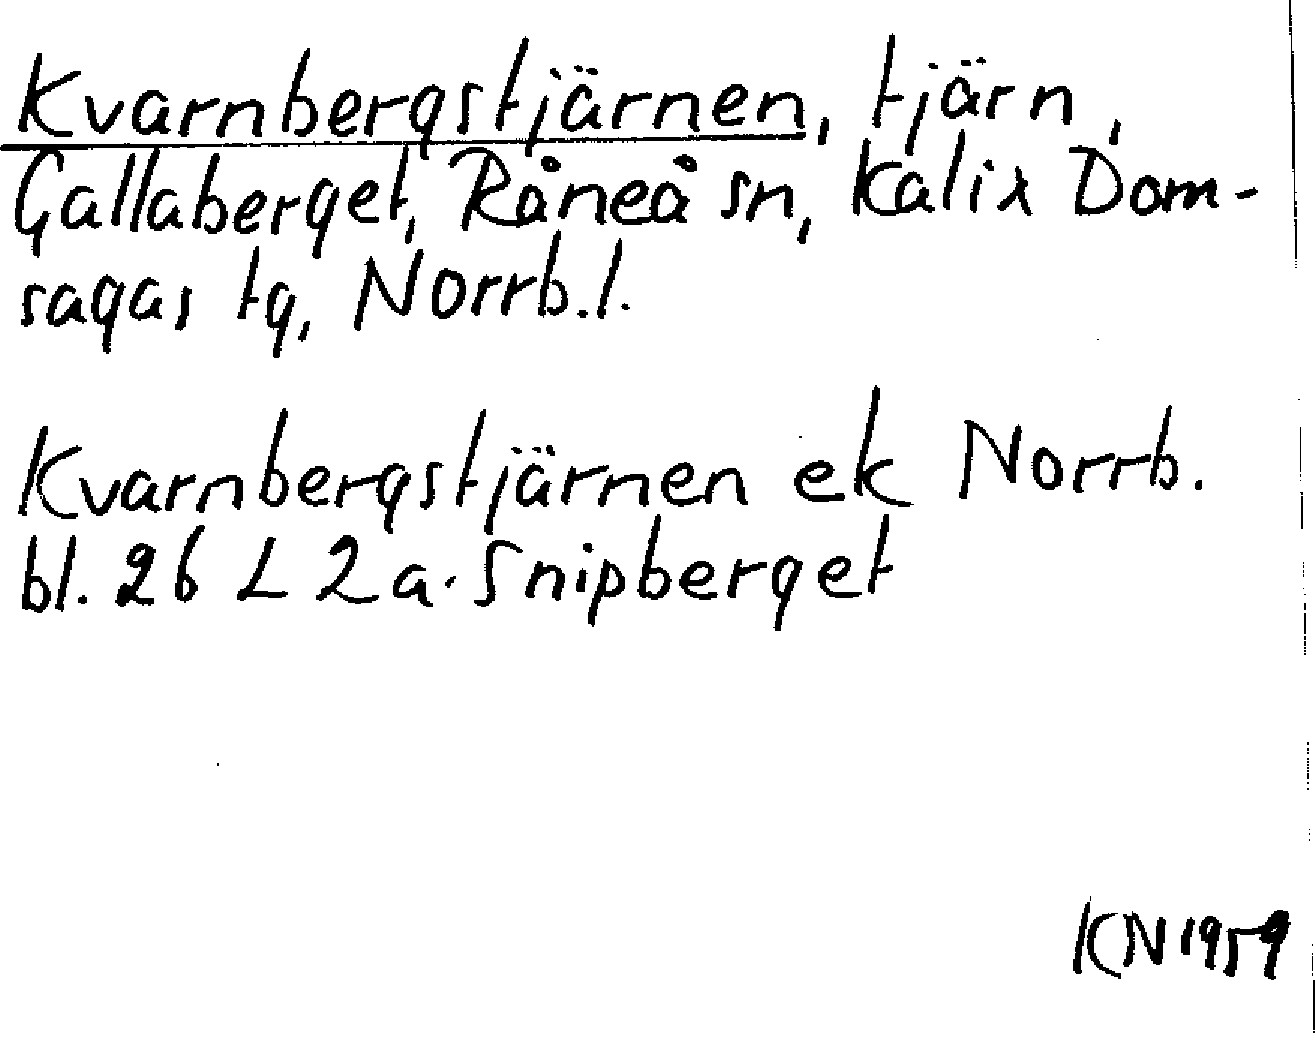 Kvarnbergstjärnen, tjärn,
Gallaberget, Råneå sn, Kalix Dom-
sagas tg, Norrb.l.
Kvarnbergstjärnen ek Norrb.
bl. 26 L 2a. Snipberget
KN 1959